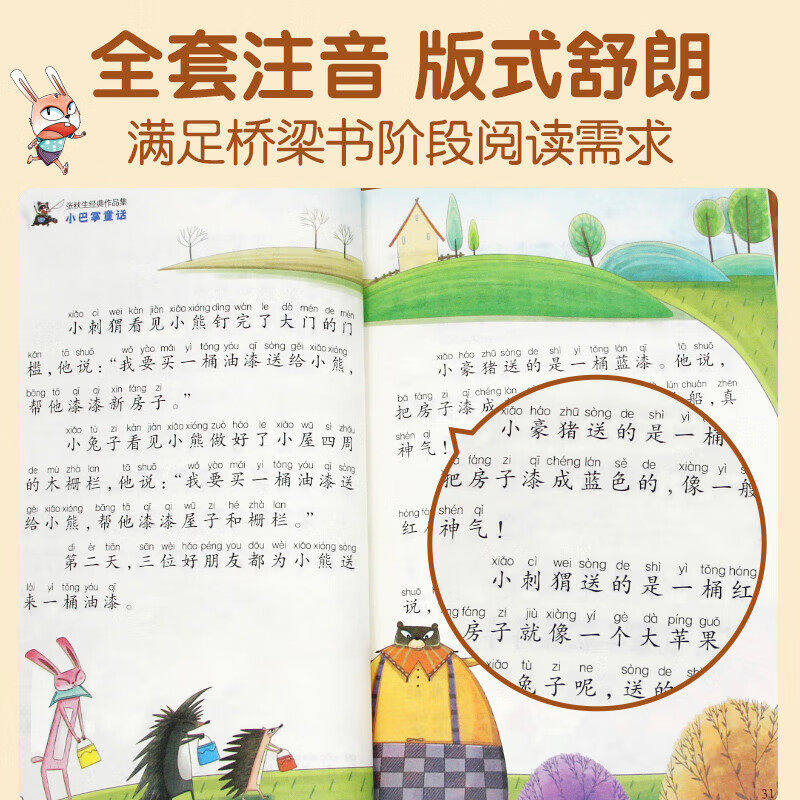 全套注音 版式舒朗
满足桥梁书阶段阅读需求
张秋生经典作品集
小巴掌童话
xiǎo cì wei kàn jiàn xiǎo xióng dìng wán le dà mén de mén
小刺猬看见小熊钉完了大门的门
kǎn tā shuō wǒ yào mǎi yì tǒng yóu qī sòng gěi xiǎo xióng
槛，他说：“我要买一桶油漆送给小熊，
bāng tā qī qi xīn fáng zi
帮他漆漆新房子。”
xiǎo tù zi kàn jiàn xiǎo xióng zuò hǎo le xiǎo wū sì zhōu
小兔子看见小熊做好了小屋四周
de mù zhà lan tā shuō wǒ yào mǎi yì tǒng yóu qī sòng
的木栅栏，他说：“我要买一桶油漆送
gěi xiǎo xióng bāng tā qī qi wū zi hé zhà lan
给小熊，帮他漆漆屋子和栅栏。”
dì èr tiān sān wèi hǎo péng you dōu wèi xiǎo xióng sòng
第二天，三位好朋友都为小熊送
lái yì tǒng yóu qī
来一桶油漆。
xiǎo háo zhū sòng de shì yì tǒng lán qī tā shuō
小豪猪送的是一桶蓝漆。他说，
bǎ fáng zi qī chéng lán lún chuán zhēn
把房子漆成 船，真
shén qì
神气！
红
说，
xiǎo háo zhū sòng de shì yì tǒng
小豪猪送的是一桶
fáng zi qī chéng lán sè de xiàng yì sōu
把房子漆成蓝色的，像一艘
shén qì
神气！
xiǎo cì wei sòng de shì yì tǒng hóng
小刺猬送的是一桶红
fáng zi jiù xiàng yí gè dà píng guǒ
房子就像一个大苹果
xiǎo tù zi ne sòng de shì
兔子呢，送的
31